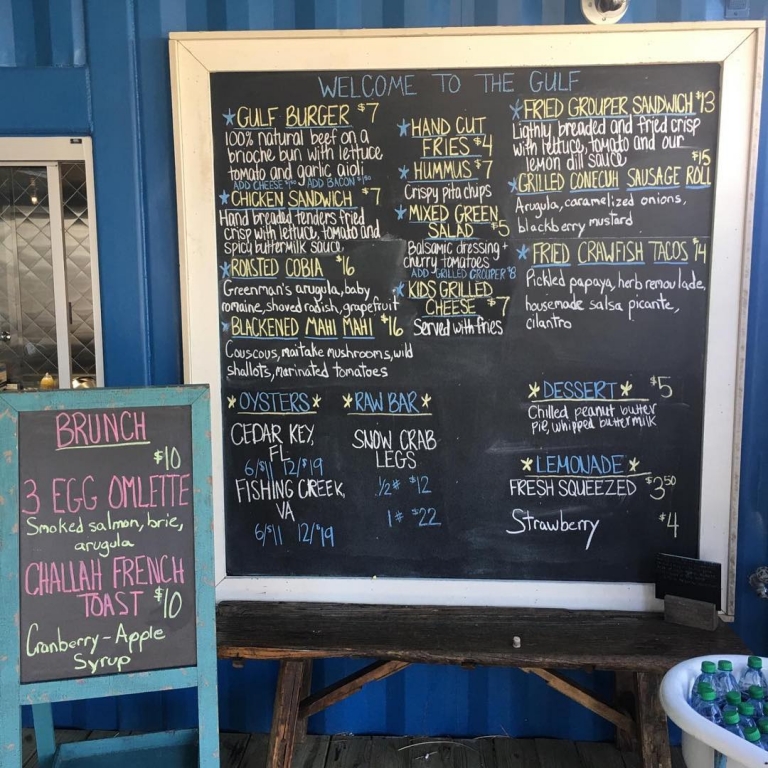 WELCOME TO THE GULF
GULF BURGER $7
100% natural beef on a
brioche bun with lettuce
tomato and garlic aioli
ADD CHEESE ADD BACON
CHICKEN SANDWICH $7
Hand breaded tenders fried
crisp with lettuce, tomato and
spicy buttermilk sauce
ROASTED COBIA $16
Greenman's arugula, baby
romaine, shaved radish, grapefruit
BLACKENED MAHI MAHI $16
Couscous, maitake mushrooms, wild
shallots, marinated tomatoes
HAND CUT
FRIES $4
HUMMUS $7
Crispy pita chips
MIXED GREEN
SALAD $5
Balsamic dressing +
cherry tomatoes
ADD GRILLED GROUPER $8
KIDS GRILLED
CHEESE $7
Served with fries
FRIED GROUPER SANDWICH $13
Lighly breaded and fried crisp
with lettuce, tomato and our
lemon dill sauce
$15
GRILLED CONECUH SAUSAGE ROLL
Arugula, caramelized onions,
blackberry mustard
FRIED CRAWFISH TACOS $14
Pickled papaya, herb remoulade,
housemade salsa picante,
cilantro
OYSTERS
CEDAR KEY,
FL
6/$11 12/$19
FISHING CREEK,
VA
6/$11 12/$19
RAW BAR
SNOW CRAB
LEGS
1/2# $12
1# $22
DESSERT $5
Chilled peanut butter
pie, whipped buttermilk
LEMONADE
FRESH SQUEEZED $3.50
Strawberry $4
BRUNCH
$10
3 EGG OMLETTE
Smoked salmon, brie,
arugula
CHALLAH FRENCH
TOAST $10
Cranberry-Apple
Syrup